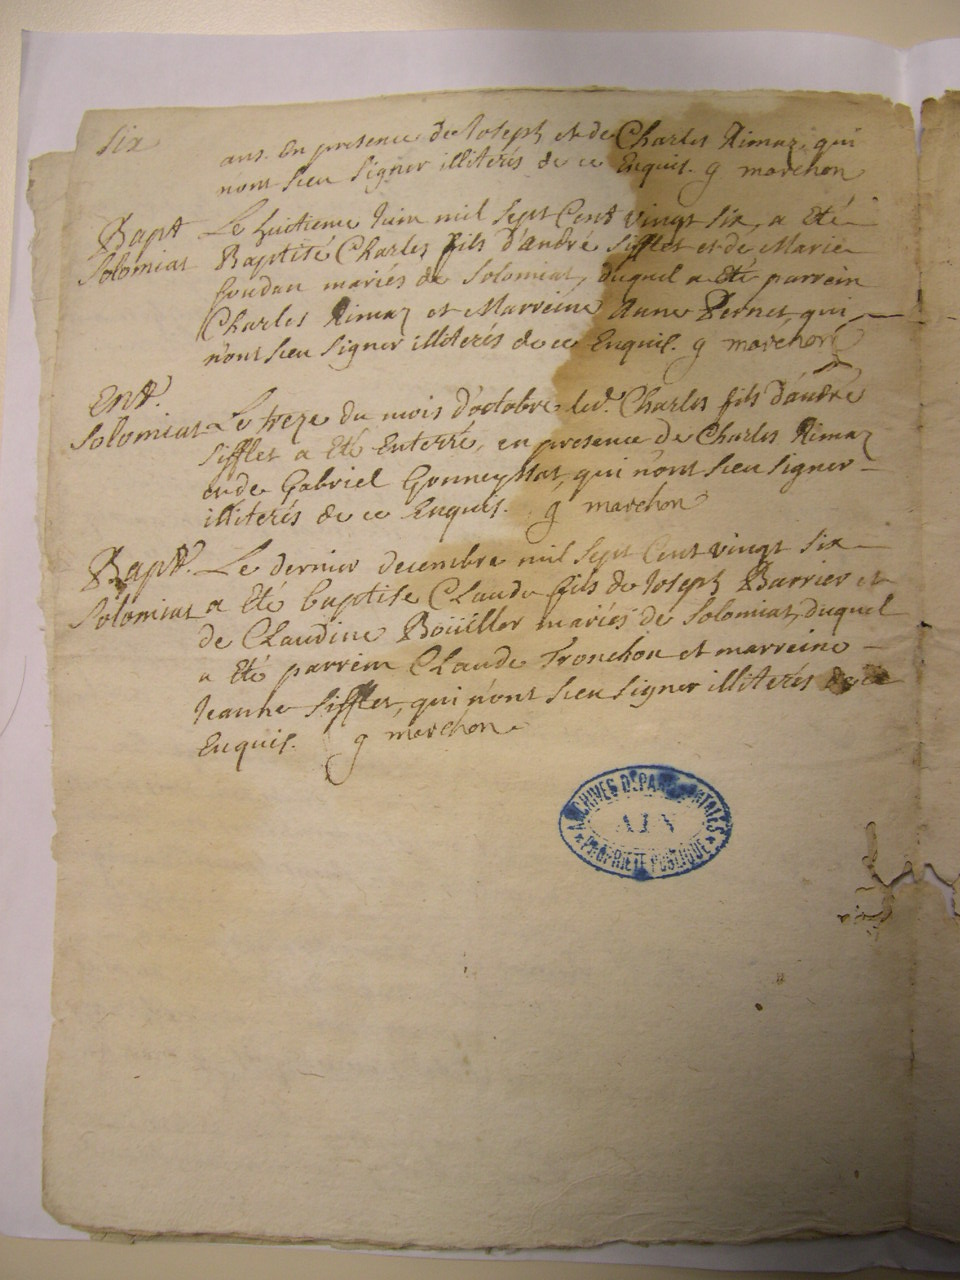 six
ans. En presence de Joseph et de Charles Rimaz qui
n'ont sceu signer illiterés de ce Enquis. g marchon
Bapt Le huitieme Juin mil sept Cent vingt six, a Eté
Solomiat Baptisé Charles fils d'andré Sifflet et de Marie
Goudan mariés de Solomiat, duquel a Eté parrein
Charles Rimaz et Marreine Anne Pernet, qui
n'ont sceu signer illiterés de ce Enquis. g marchon
Entt.
Solomiat Le treze du mois d'octobre led. Charles fils d'andré
Sifflet a Eté Enterré, en presence de Charles Rimaz
et de Gabriel qui n'ont sceu signer
illiterés de ce Enquis. g marchon
Baptt. Le dernier decembre mil sept Cent vingt six
Solomiat a Eté baptisé Claude fils de Joseph Barrier et
de Claudine Boüiller mariés de Solomiat, duquel
a Eté parrein Claude Tronchon et marreine
Jeanne Sifflet, qui n'ont sceu signer illiterés de ce
Enquis. g marchon
ARCHIVES DÉPARTEMENTALES
AIN
* PROPRIÉTÉ PUBLIQUE *